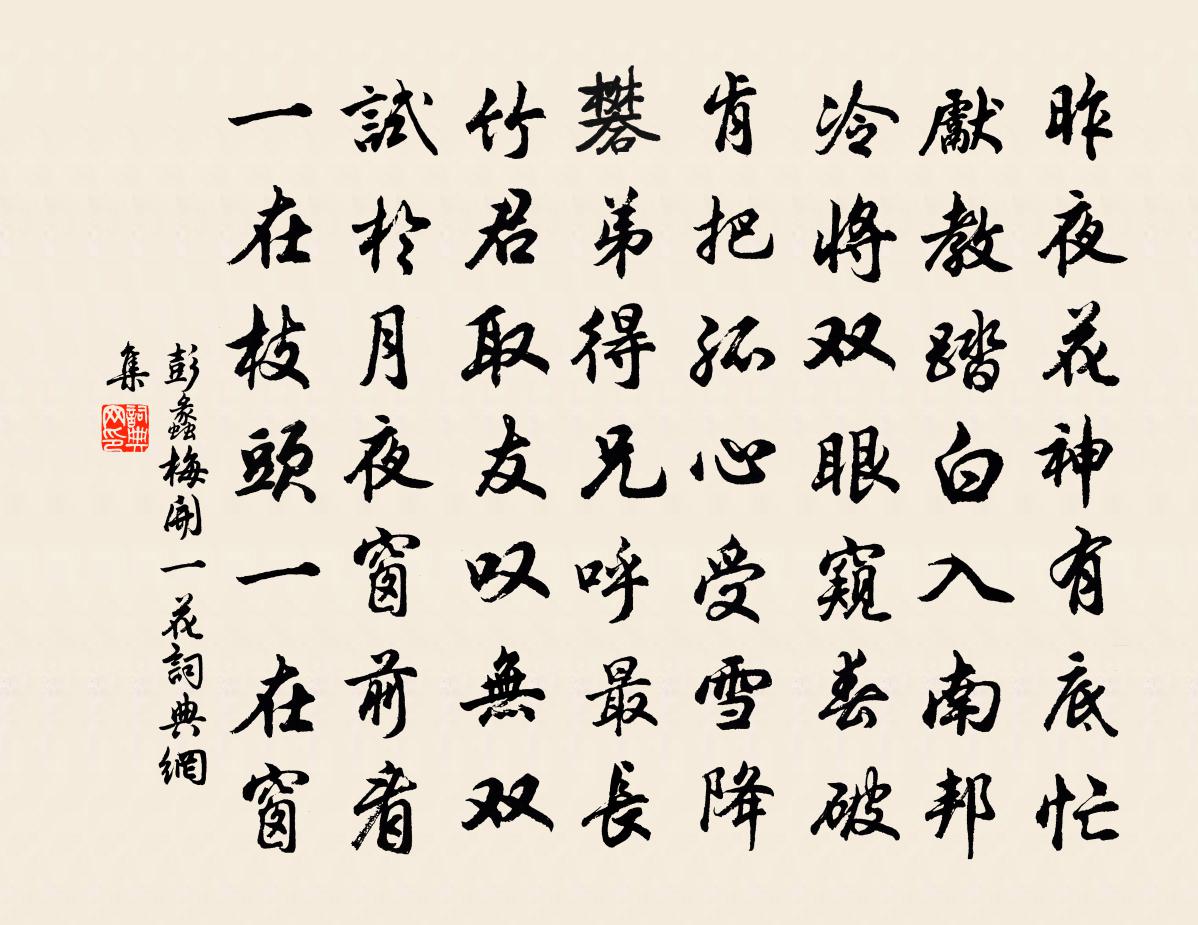 昨夜花神有底忙
獻教踏白入南邦
冷將双眼窺春破
肯把孤心受雪降
礬弟得兄呼最長
竹君取友叹無双
試於月夜窗前看
一在枝頭一在窗
彭蠡梅開一花詞典網
集
詞典
网印